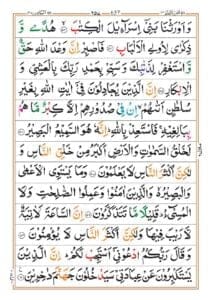 وَاَوْرَثْنَا بَنِيْٓ اِسْرَآءِيْلَ الْكِتٰبَ ۙ هُدًى وَّ
ذِكْرٰى لِاُولِي الْاَلْبَابِ فَاصْبِرْ اِنَّ وَعْدَ اللّٰهِ حَقٌّ
وَّاسْتَغْفِرْ لِذَنْۢبِكَ وَسَبِّحْ بِحَمْدِ رَبِّكَ بِالْعَشِيِّ وَ
الْاِبْكَارِ اِنَّ الَّذِيْنَ يُجَادِلُوْنَ فِيْٓ اٰيٰتِ اللّٰهِ بِغَيْرِ
سُلْطٰنٍ اَتٰىهُمْ ۙ اِنْ فِيْ صُدُوْرِهِمْ اِلَّا كِبْرٌ مَّا هُمْ
بِبَالِغِيْهِ ۚ فَاسْتَعِذْ بِاللّٰهِ ؕ اِنَّهٗ هُوَ السَّمِيْعُ الْبَصِيْرُ
لَخَلْقُ السَّمٰوٰتِ وَالْاَرْضِ اَكْبَرُ مِنْ خَلْقِ النَّاسِ وَ
لٰكِنَّ اَكْثَرَ النَّاسِ لَا يَعْلَمُوْنَ وَمَا يَسْتَوِي الْاَعْمٰى
وَالْبَصِيْرُ ۙ وَالَّذِيْنَ اٰمَنُوْا وَعَمِلُوا الصّٰلِحٰتِ وَلَا
الْمُسِيْٓءُ ؕ قَلِيْلًا مَّا تَتَذَكَّرُوْنَ اِنَّ السَّاعَةَ لَاٰتِيَةٌ
لَّا رَيْبَ فِيْهَا وَلٰكِنَّ اَكْثَرَ النَّاسِ لَا يُؤْمِنُوْنَ
وَقَالَ رَبُّكُمُ ادْعُوْنِيْٓ اَسْتَجِبْ لَكُمْ ؕ اِنَّ الَّذِيْنَ
يَسْتَكْبِرُوْنَ عَنْ عِبَادَتِيْ سَيَدْخُلُوْنَ جَهَنَّمَ دٰخِرِيْنَ